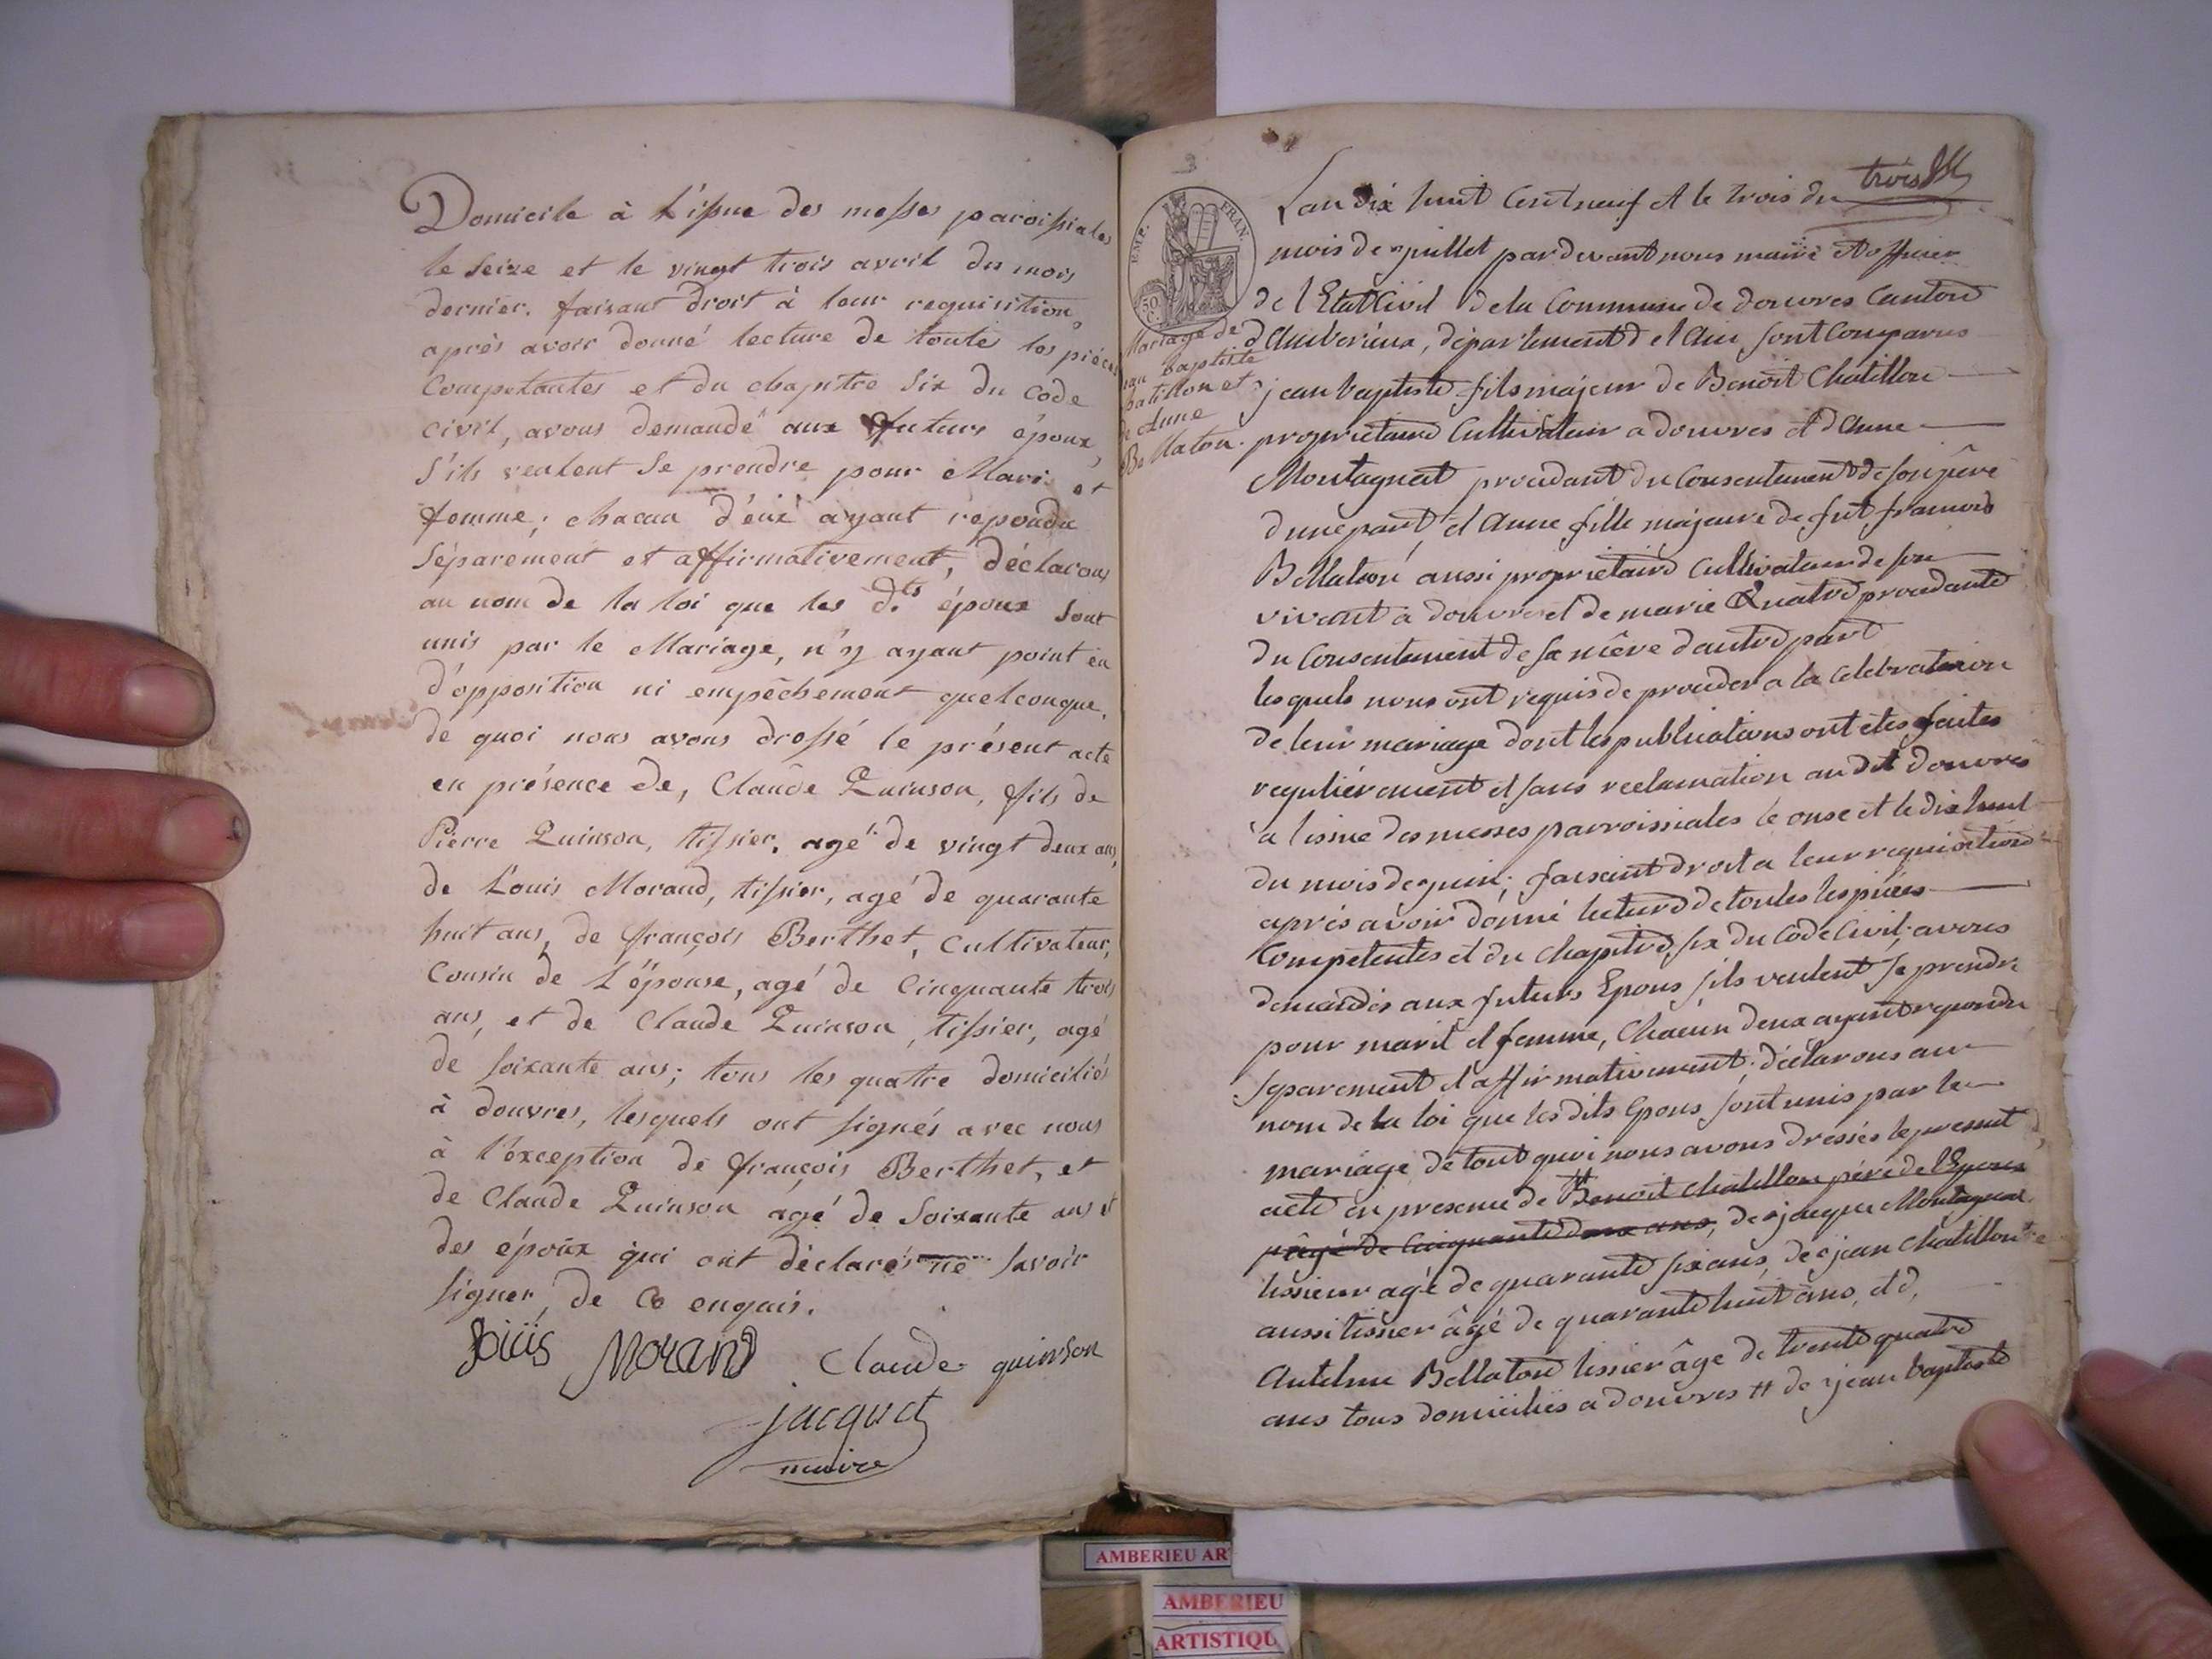 Domicile à l'issue des messes paroissiales
le seize et le vingt trois avril du mois
dernier. faisant droit à leur requisition,
après avoir donné lecture de toute les pièces
Competantes et du chapitre Six du Code
civil, avons demandé aux futurs époux,
S'ils veulent se prendre pour Mari et
femme; chacun d'eux ayant répondu
Séparement et affirmativement, déclarons
au nom de la loi que les d.ts époux sont
unis par le Mariage, n'y ayant point eu
d'opposition ni empêchement quelconque.
de quoi nous avons dressé le présent acte
en présence de, Claude Quinson, fils de
Pierre Quinson, tissier, agé de vingt deux ans,
de Louis Morand, tissier, agé de quarante
huit ans, de françois Berthet, Cultivateur,
Cousin de L'épouse, agé de Cinquante trois
ans, et de Claude Quinson, tissier, agé
de soixante ans; tous les quatre domiciliés
à douvres, lesquels ont signés avec nous
à l'éxception de françois Berthet, et
de Claude Quinson agé de Soixante ans et
des époux qui ont déclarés ne savoir
signer, de ce enquis.
Loüis Morand Claude quinson
jacquet
maire
trois
EMP. FRAN.
50 C.
Mariage de
baptiste
Chatillon et
d'Anne
Bellaton.
Lan dix huit Cent neuf et le trois du
mois de juillet par devant nous maire et officier
de l'Etat Civil de la Commune de douvres Canton
d'Amberieux, département de l'Ain sont Comparus
jean baptiste fils majeur de Benoit Chatillon
proprietaire Cultivateur a douvres et d'Anne
Montagnat procedant du Consentement de son père
d'une part, et Anne fille majeure de fut francois
Bellaton aussi proprietaire Cultivateur de son
vivant a douvres et de marie Quatre procedante
du Consentement de sa mère dautre part
lesquels nous ont requis de proceder a la Celebration
de leur mariage dont les publications ont étés faites
reguliérement et sans reclamation au dit douvres
a lissue des messes parroissiales le onse et le dix huit
du mois de juin; faisant droit a leur requisition
aprés avoir donné lecture de toutes les piéces
Competentes et du chapitre six du Code Civil, avons
demandés aux futurs Epous sils veulent se prendre
pour marit et femme, Chacun deux ayant repondu
separement et affirmativement. déclarons au
nom de la loi que les dits Epous sont unis par le
mariage de tout quoi nous avons dressés le present
acte en presence de Benoit Chatillon père de l'Epoux
agé de Cinquante deux ans, de jacque Montagnat
tissieur agé de quarante six ans, de jean Chatillon
aussi tissier âgé de quarante huit ans, et d,
Antelme Bellaton tissier âge de trente quatre
ans tous domiciliés a douvres # de jean baptiste
AMBERIEU AR
AMBERIEU
ARTISTIQU